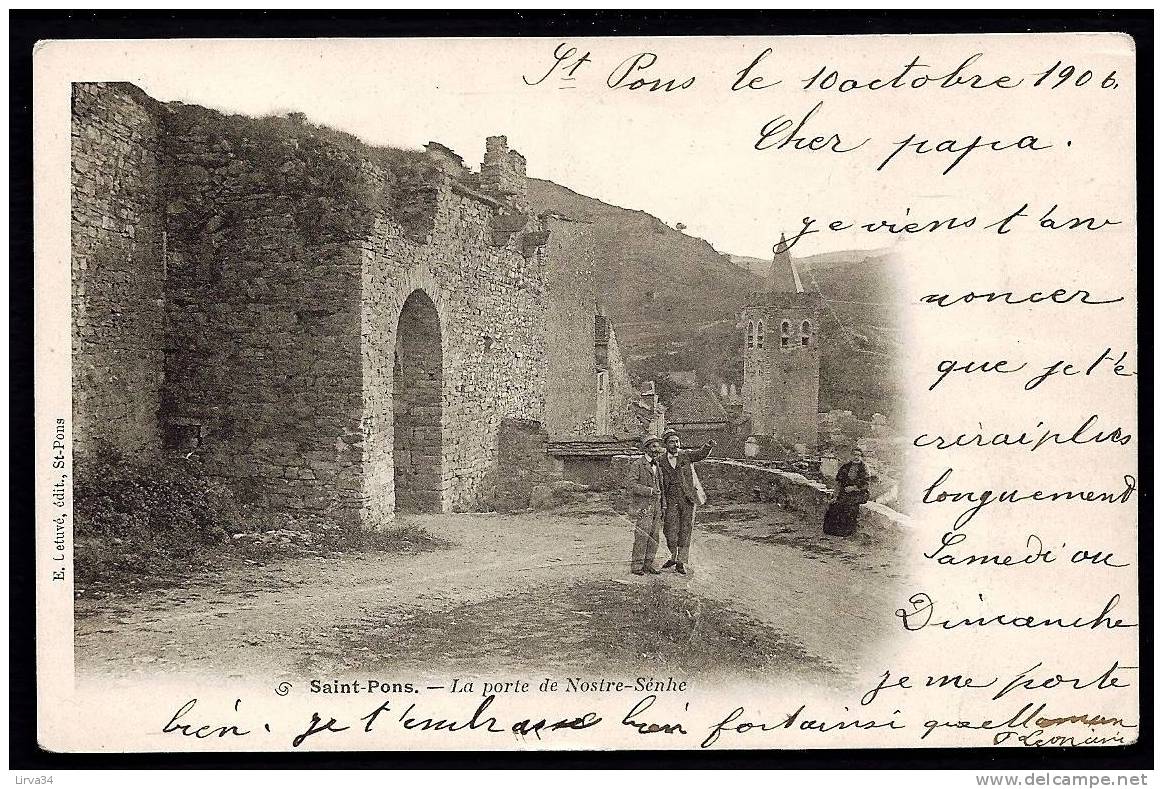 St Pons le 10 octobre 1906.
Cher papa.
je viens t'an
noncer
que je t'é
crirai plus
longuement
Samedi ou
Dimanche
je me porte
bien. je t'embrasse bien fort ainsi que Maman
E. Cetuvé, édit., St-Pons
Saint-Pons. — La porte de Nostre-Sénhe
Lirva34
www.delcampe.net